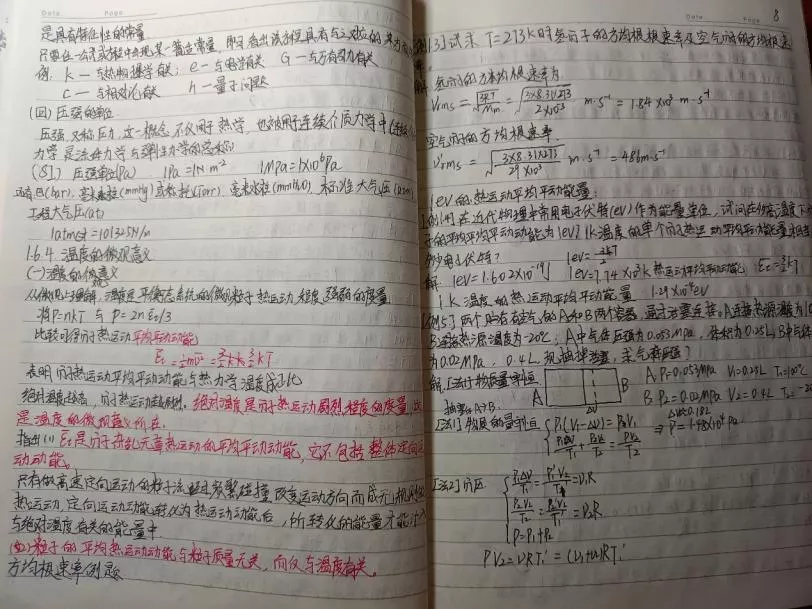 是具有特征性的常量
只要在一公式或方程中出现某一普适常量,即可看出该方程具有与之对应的某方面
例. k — 与热物理学有关; e — 与电学有关 G — 与万有引力有关
c — 与相对论有关 h — 量子问题
(四) 压强的单位
压强,又称压力,这一概念不仅用于热学,也被用于连续介质力学中(连续介质
力学是流体力学与弹性力学的总称)
(SI) 压强单位(Pa) 1Pa = 1N·m⁻² 1MPa = 1×10⁶Pa
巴(bar),毫米汞柱(mmHg)或称托(Torr),毫米水柱(mmH₂O),标准大气压(atm),
工程大气压(at)
1atm = 101325N/m
1.6.4 温度的微观意义
(一) 温度的微观意义
从微观上理解,温度是平衡态系统的微观粒子热运动程度强弱的度量
将P=nkT 与 P=2nε̄t/3
比较可得分子热运动平均平动动能
ε̄t = ½mv̄² = 3/2 kT
表明分子热运动平均平动动能与热力学温度成正比
绝对温度越高,分子热运动越剧烈.绝对温度是分子热运动剧烈程度的度量,这
是温度的微观意义所在.
指出 (1) ε̄t是分子杂乱无章热运动的平均平动动能,它不包括整体定向运
动动能.
只有做高速定向运动的粒子流经过频繁碰撞改变运动方向而成无规则的
热运动,定向运动动能转化为热运动动能后,所转化的能量才能计入
与绝对温度有关的能量中.
(2) 粒子的平均热运动动能与粒子质量无关,而仅与温度有关.
方均根速率例题
8
13] 试求 T=273k时氢分子的方均根速率及空气分子的方均根速
氢分子的方均根速率为
Vrms = √(3RT/Mm) = √(3×8.31×273/2×10⁻³) m·s⁻¹ = 1.84×10³ m·s⁻¹
空气分子的方均根速率
V'rms = √(3×8.31×273/29×10⁻³) m·s⁻¹ = 486m·s⁻¹
1ev的热运动平均平动能量:
例] 在近代物理中常用电子伏特(ev)作为能量单位,试问在何温度下分
子的平均平动动能为1ev? 1k温度的单个分子热运动平均平动能量相当
多少电子伏特?
解. 1ev = 1.602×10⁻¹⁹J 1ev = 3/2 kT
1ev = 7.74×10³k 热运动平均平动动能 ε̄t = 3/2 kT
1k温度的热运动平均平动能量 1.29×10⁻⁴ev
例5] 两个贮有空气的A和B两个容器通过活塞连接.A连接热源温度为10
B连接热源温度为-20℃; A中气体压强为0.053MPa,体积为0.25L; B中气体
为0.02MPa, 0.4L,
求气体压强?
解.
A B A. P₁=0.053MPa V₁=0.25L T₁=100℃
抽塞右A>B. B. P₂=0.02MPa V₂=0.4L T₂=-20
ΔV
[法1] 物质的量守恒 { P₁(V₁-ΔV) = P₂V₂
P₁ΔV/T₁ + P₂V₂/T₂ = PV₂/T₂
⇒ ΔV=0.182L
P=1.98×10⁴Pa
[法2] 分压 { P₁ΔV/T₁ = P₁'V₂/T₁' = υ₁R
P₂V₂/T₂ = P₂'V₂/T₁' = υ₂R
P = P₁+P₂
PV₂ = υRT₁' = (υ₁+υ₂)RT₁'